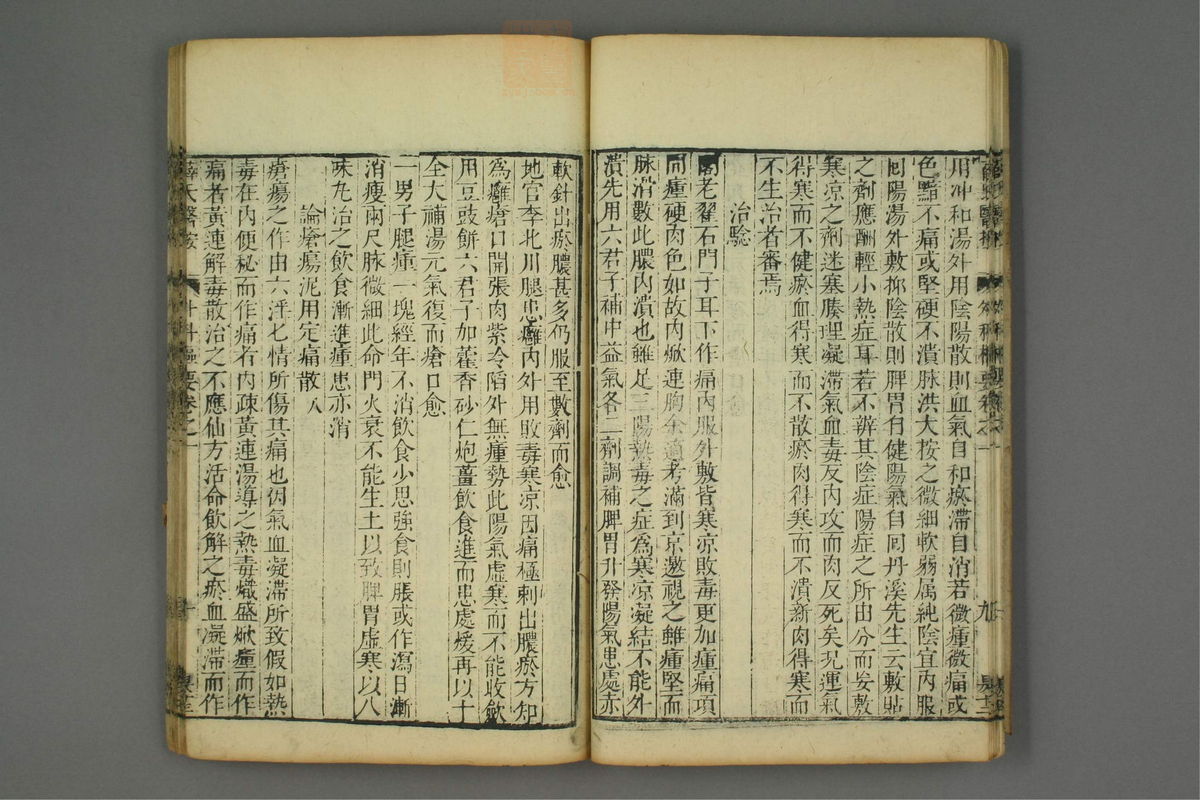 用冲和湯外用陰陽散則血氣自和瘀滯自消若微腫微痛或
色黯不痛或堅硬不潰脉洪大按之微細軟弱属純陰宜内服
囘陽湯外敷抑陰散則脾胃自健陽氣自囘丹溪先生云敷貼
之劑應酬輕小熱症耳若不辨其陰症陽症之所由分而妄敷
寒凉之劑迷塞腠理凝滯氣血毒反内攻而肉反死矣况運氣
得寒而不健瘀血得寒而不散瘀肉得寒而不潰新肉得寒而
不生治者審焉
治驗
閣老翟石門子耳下作痛内服外敷皆寒凉敗毒更加腫痛項
間腫硬肉色如故内焮連胸余適考滿到京邀視之雖腫堅而
脉滑數此膿内潰也雖足三陽熱毒之症爲寒凉凝結不能外
潰先用六君子補中益氣各二劑調補脾胃升發陽氣患處亦
軟針出瘀膿甚多仍服至數劑而愈
地官李北川腿患癰内外用敗毒寒凉因痛極刺出膿瘀方知
爲癰瘡口開張肉紫令陷外無腫勢此陽氣虛寒而不能收斂
用豆豉餅六君子加藿香砂仁炮薑飲食進而患處煖再以十
全大補湯元氣復而瘡口愈
一男子腿腫一塊經年不消飲食少思強食則脹或作瀉日漸
消瘦兩尺脉微細此命門火衰不能生土以致脾胃虛寒以八
味丸治之飲食漸進腫患亦消
論瘡瘍泥用定痛散八
瘡瘍之作由六淫七情所傷其痛也因氣血凝滯所致假如熱
毒在内便秘而作痛者内疎黃連湯導之熱毒熾盛焮腫而作
痛者黃連解毒散治之不應仙方活命飲解之瘀血凝滯而作
薛氏醫按
外科樞要卷之一
十